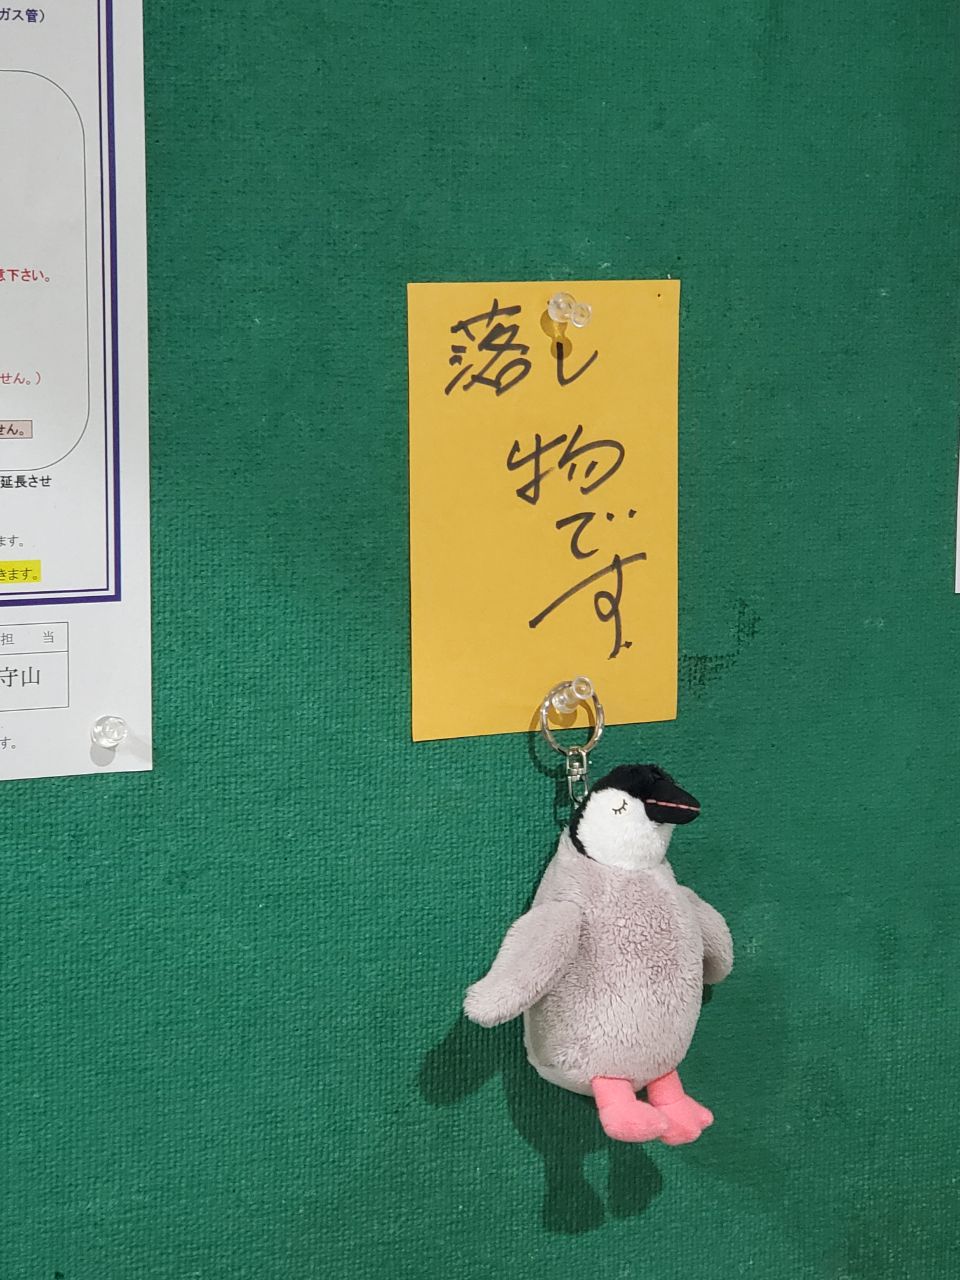 ガス管）
意下さい。
せん。）
せん。
延長させ
ます。
きます。
担 当
守山
す。
落し
物
で
す